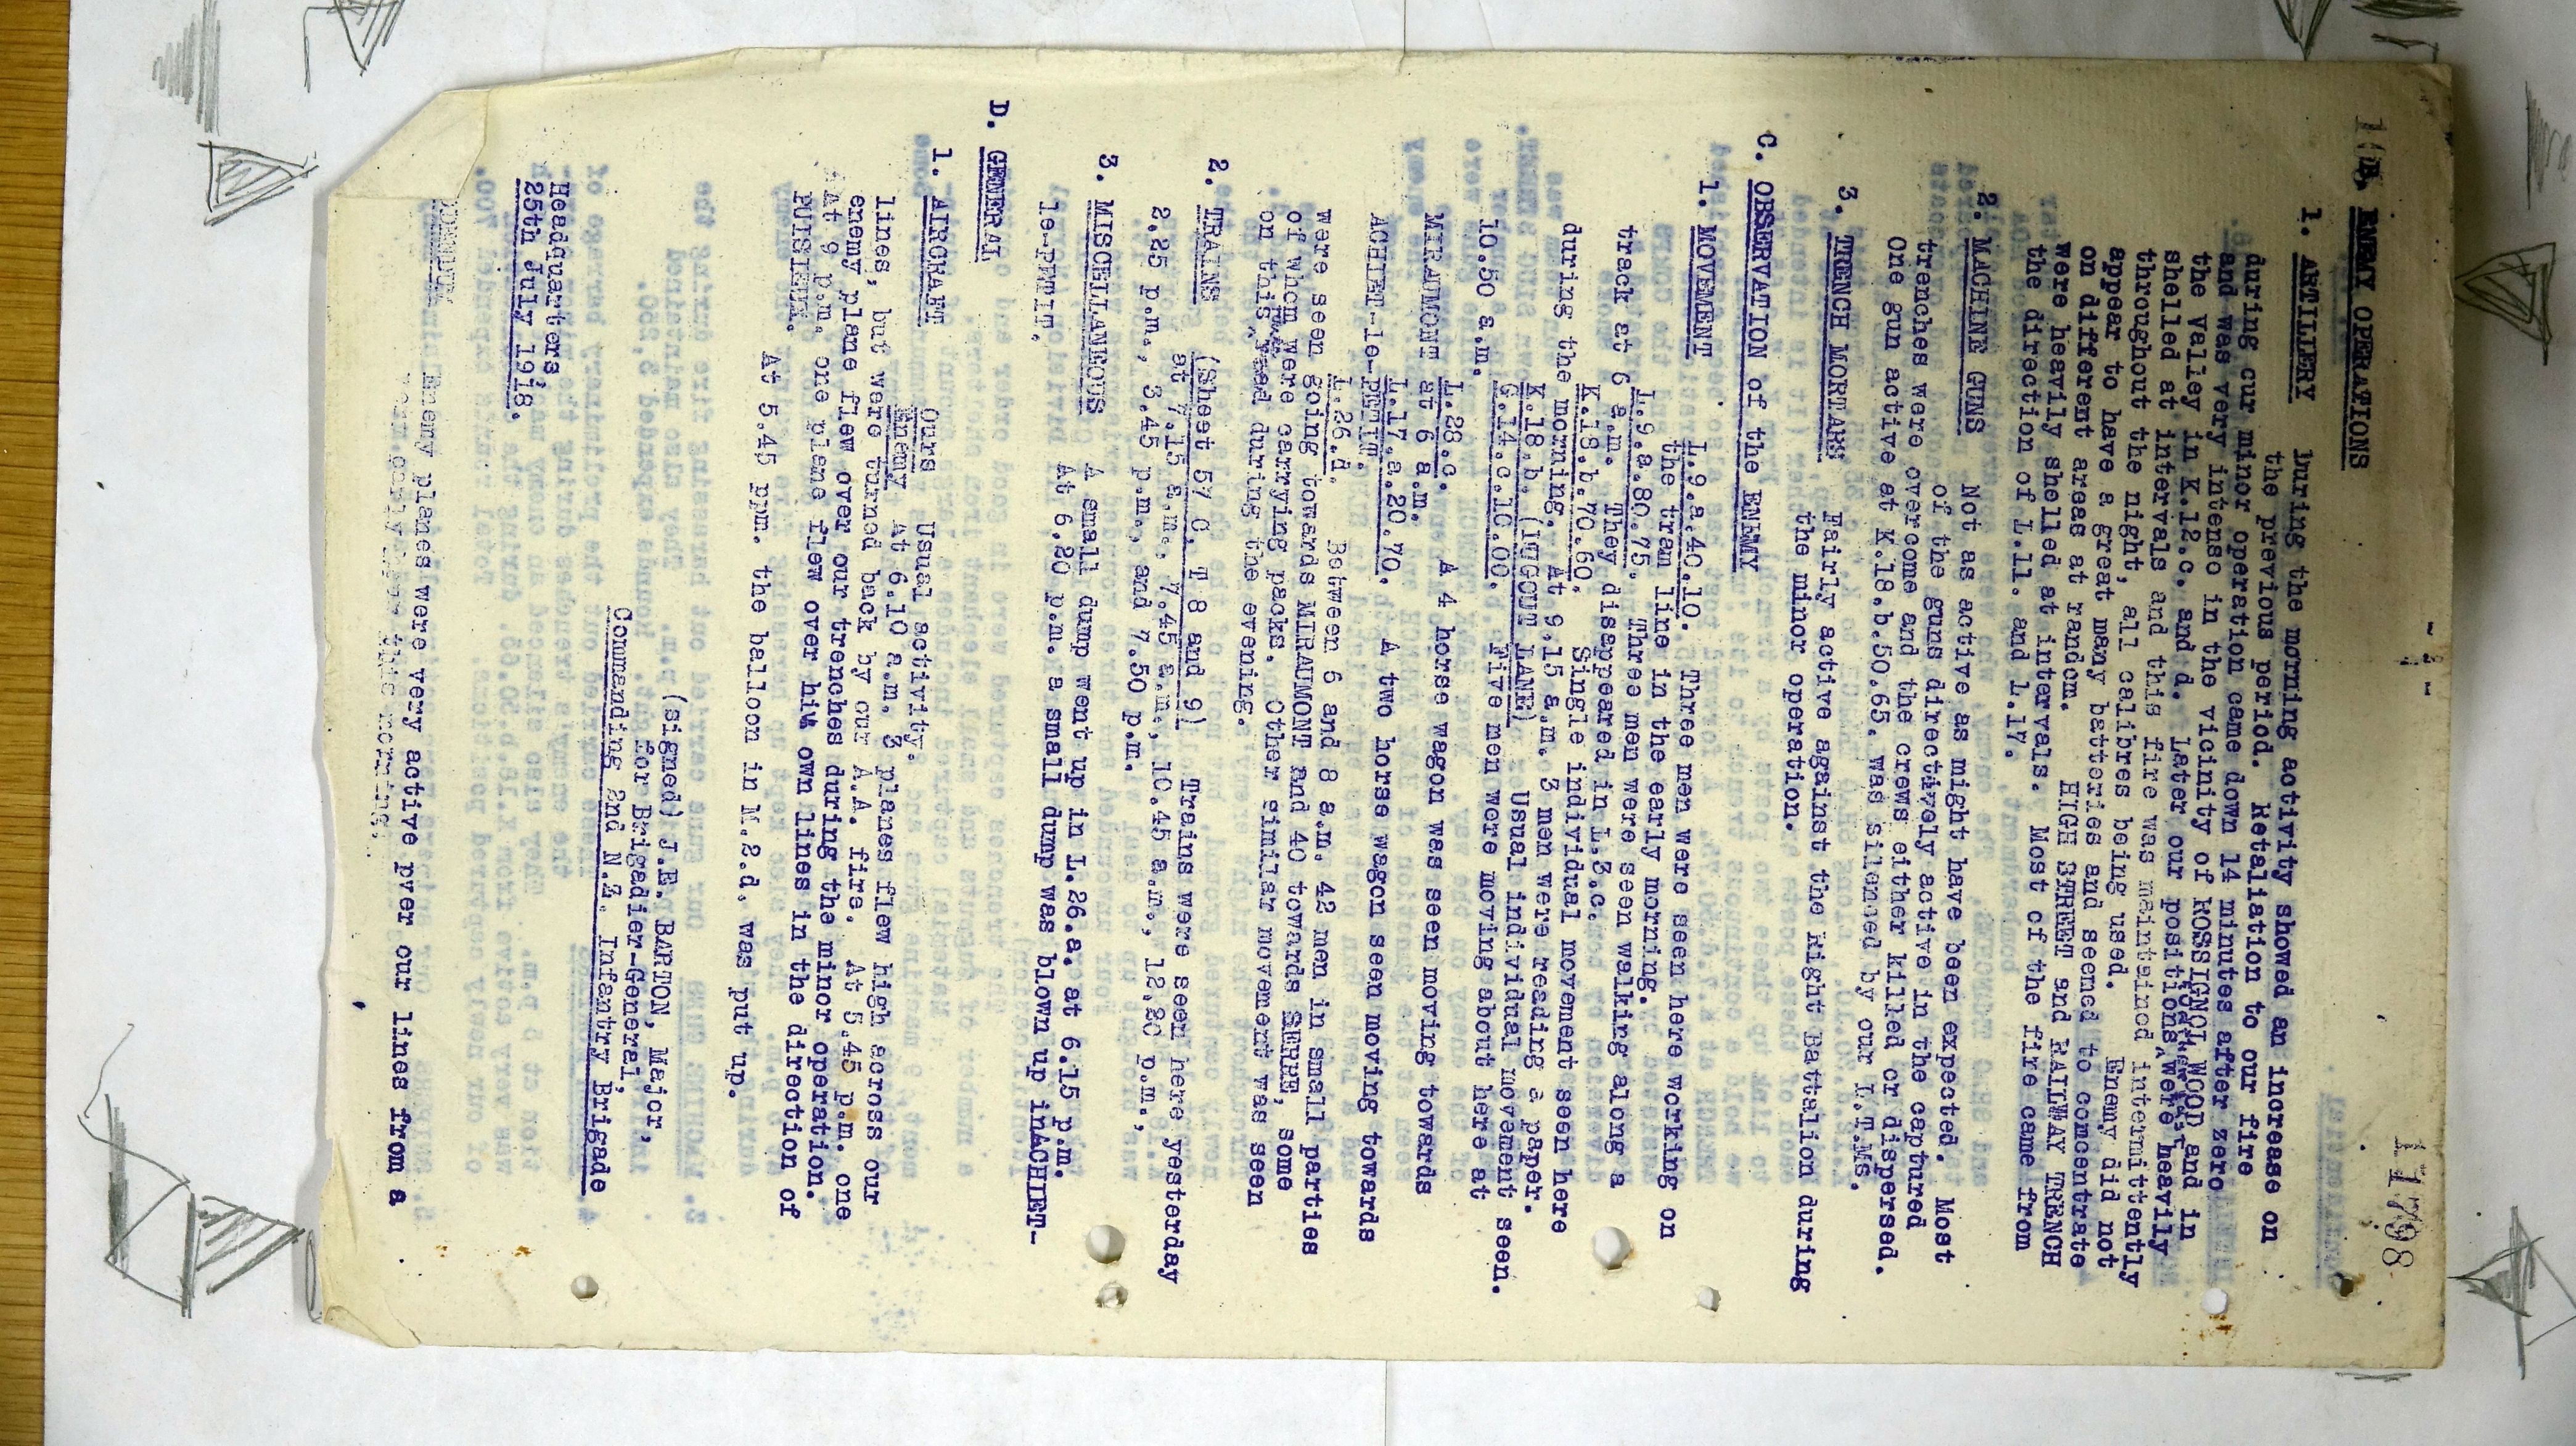 - 2 -
1798
B. ENEMY OPERATIONS
1. ARTILLERY During the morning activity showed an increase on
the previous period. Retaliation to our fire
during our minor operation came down 14 minutes after zero
and was very intense in the vicinity of ROSSIGNOL WOOD and in
the valley in K.12.c. and d. Later our positions were heavily
shelled at intervals and this fire was maintained intermittently
throughout the night, all calibres being used. Enemy did not
appear to have a great many batteries and seemed to concentrate
on different areas at random. HIGH STREET and RAILWAY TRENCH
were heavily shelled at intervals. Most of the fire came from
the direction of L.11. and L.17.
2. MACHINE GUNS Not as active as might have been expected. Most
of the guns directively active in the captured
trenches were overcome and the crews either killed or dispersed.
One gun active at K.18.b.50.65. was silenced by our L.T.Ms.
3. TRENCH MORTARS Fairly active against the Right Battalion during
the minor operation.
C. OBSERVATION of the ENEMY
1. MOVEMENT L.9.a.40.10. Three men were seen here working on
the tram line in the early morning.
L.9.a.80.75. Three men were seen walking along a
track at 6 a.m. They disappeared in L.3.c.
K.18.b.70.60. Single individual movement seen here
during the morning. At 9.15 a.m. 3 men were reading a paper.
K.18.b. (DUGOUT LANE) Usual individual movement seen.
G.14.c.10.00. Five men were moving about here at
10.50 a.m.
L.28.c. A 4 horse wagon was seen moving towards
MIRAUMONT at 6 a.m.
L.17.a.20.70. A two horse wagon seen moving towards
ACHIET-le-PETIT.
L.26.d. Between 6 and 8 a.m. 42 men in small parties
were seen going towards MIRAUMONT and 40 towards SERRE, some
of whom were carrying packs. Other similar movement was seen
on this road during the evening.
2. TRAINS (Sheet 57 C, T 8 and 9) Trains were seen here yesterday
at 7.15 a.m., 7.45 a.m., 10.45 a.m., 12.20 p.m.,
2.25 p.m., 3.45 p.m., and 7.50 p.m.
3. MISCELLANEOUS A small dump went up in L.26.a. at 6.15 p.m.
At 6.20 p.m. a small dump was blown up in ACHIET-
le-PETIT.
D. GENERAL
1. AIRCRAFT Ours Usual activity.
Enemy At 6.10 a.m. 3 planes flew high across our
lines, but were turned back by our A.A. fire. At 5.45 p.m. one
enemy plane flew over our trenches during the minor operation.
At 9 p.m. one plane flew over his own lines in the direction of
PUISIEUX.
At 5.45 ppm. the balloon in M.2.d. was put up.
(signed) J.E. BARTON, Major,
for Brigadier-General,
Commanding 2nd N.Z. Infantry Brigade
Headquarters,
25th July 1918.
Enemy planes were very active pver our lines from a
early hour this morning.